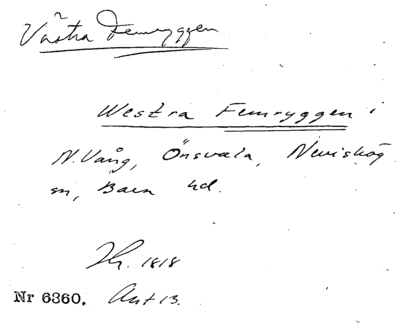 Västra Femryggen
Westra Femryggen i
N. Vång, Önsvala, Nevishög
sn, Bara hd.
1818
Nr 6360. Akt 13.